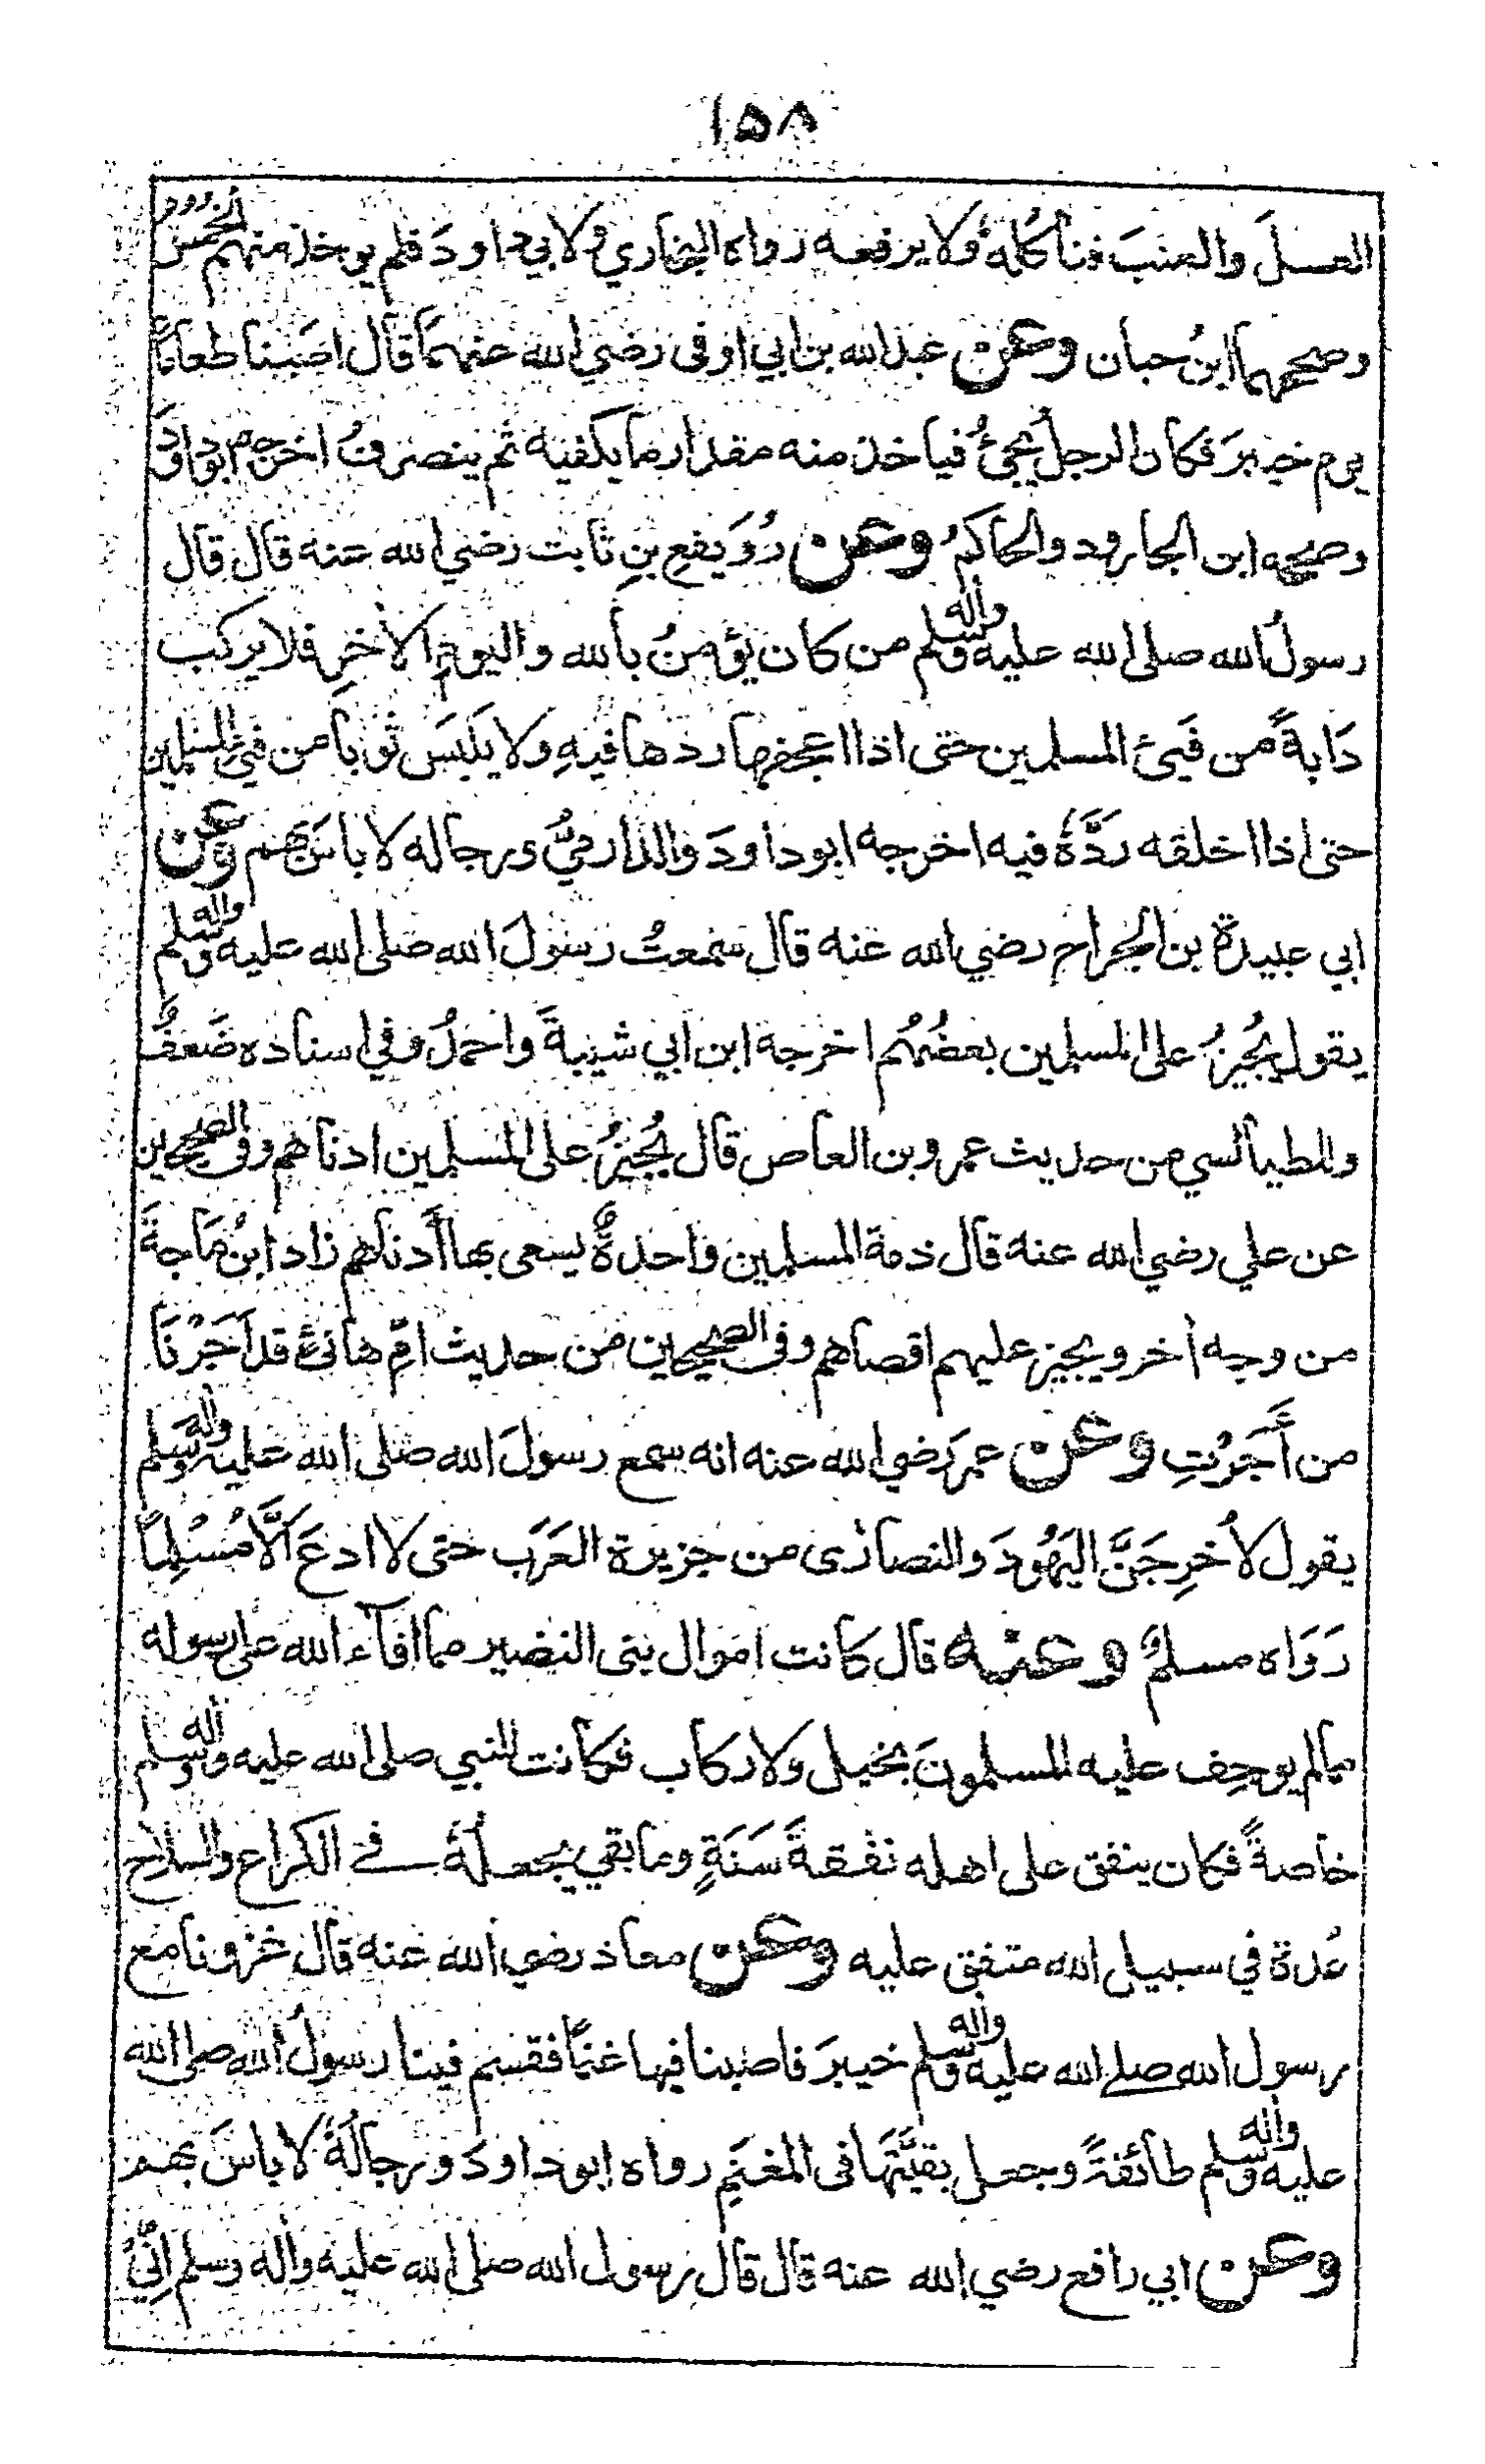 ١٥٨
العسلَ والعنبَ فنأكلهُ ولا يرفعه رواه البخاري ولابي داودَ فلم يوخذ منهم الخمسُ
وصححهما ابنُ حبان وعن عبد الله بن ابي اوفى رضي الله عنهما قال اصبنا طعاماً
يوم خيبرَ فكان الرجلُ يجيئُ فياخذ منه مقدار ما يكفيه ثم ينصرفُ اخرجه ابوداودَ
وصححه ابن الجارود والحاكمُ وعن رُوَيفعِ بنِ ثابت رضي الله عنه قال قال
رسولُ الله صلى الله عليه وأله وسلم من كان يؤمنُ بالله واليومِ الأخرِ فلا يركب
دَابةً من فَيئ المسلمين حتى اذا اعجفها ردها فيهِ ولا يلبَسَ ثوباً من فيئ المسلمين
حتى اذا اخلقه ردَّهُ فيه اخرجه ابوداودَ والدارميُّ ورجاله لا باسَ بهم وعن
ابي عبيدة بن الجراح رضي الله عنه قال سمعتُ رسولَ الله صلى الله عليه واله وسلم
يقول يُجيزُ على المسلمين بعضُهُم اخرجهُ ابن ابي شيبةَ واحمدُ وفي اسناده ضَعفٌ
وللطيالسي من حديث عمرو بن العاص قال يُجيزُ على المسلمين ادناهم وفي الصحيحين
عن علي رضي الله عنه قال ذمة المسلمين واحدةٌ يسعى بها أدناهم زاد ابنُ مَاجةَ
من وجه أخر ويجيز عليهم اقصاهم وفى الصحيحين من حديث امِّ هانئ قد اَجَرْنَا
من أَجَرْتِ وعن عمرَ رضي الله عنه انه سمع رسولَ الله صلى الله عليه وأله وسلم
يقول لأُخرِجَنَّ اليَهُودَ والنصارٰى من جزيرة العَرَب حتى لا ادعَ الَّا مُسْلِماً
رَوَاه مسلمٌ وعنه قال كانت اموال بنى النضير مما افآء الله على رسوله
مما لم يوجِف عليه المسلمونَ بخيل ولا ركاب فكانت للنبي صلى الله عليه وأله وسلم
خاصةً فكان ينفق على اهله نفقةَ سَنَةٍ وما بقي يجعلهُ في الكراع والسلاح
عُدة في سبيل الله متفق عليه وعن معاذ رضي الله عنه قال غزونا مع
رسول الله صلى الله عليه وأله وسلم خيبرَ فاصبنا فيها غنماً فقسم فينا رسولُ الله صلى الله
عليه وأله وسلم طائفةً وجعل بقيَّتَهَا فى المغنمِ رواه ابوداودَ ورجالُهُ لا باسَ بهم
وعن ابي رافع رضي الله عنه قال قال رسول الله صلى الله عليه وأله وسلم اِنّيْ